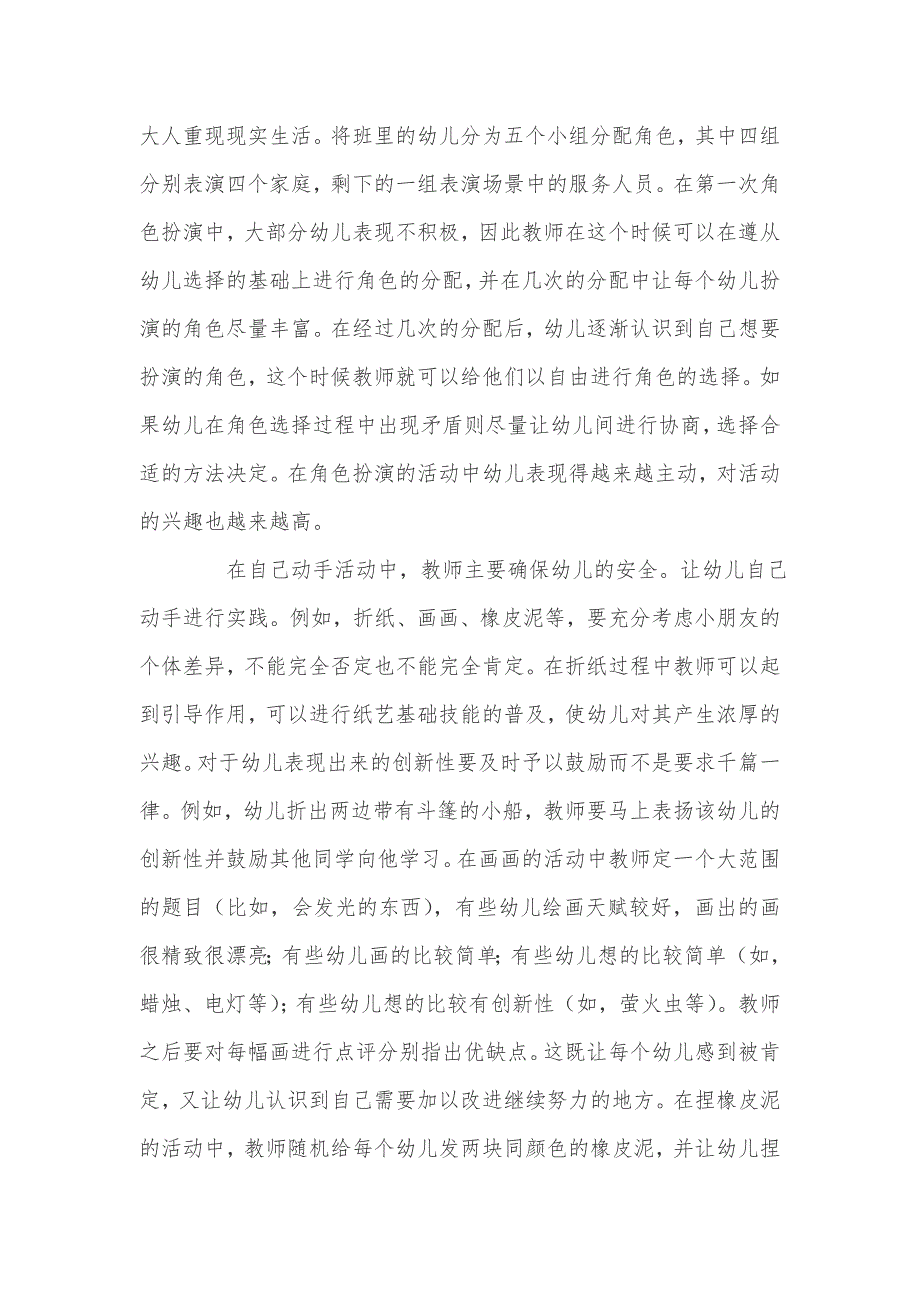 大人重现现实生活。将班里的幼儿分为五个小组分配角色，其中四组
分别表演四个家庭，剩下的一组表演场景中的服务人员。在第一次角
色扮演中，大部分幼儿表现不积极，因此教师在这个时候可以在遵从
幼儿选择的基础上进行角色的分配，并在几次的分配中让每个幼儿扮
演的角色尽量丰富。在经过几次的分配后，幼儿逐渐认识到自己想要
扮演的角色，这个时候教师就可以给他们以自由进行角色的选择。如
果幼儿在角色选择过程中出现矛盾则尽量让幼儿间进行协商，选择合
适的方法决定。在角色扮演的活动中幼儿表现得越来越主动，对活动
的兴趣也越来越高。
在自己动手活动中，教师主要确保幼儿的安全。让幼儿自己
动手进行实践。例如，折纸、画画、橡皮泥等，要充分考虑小朋友的
个体差异，不能完全否定也不能完全肯定。在折纸过程中教师可以起
到引导作用，可以进行纸艺基础技能的普及，使幼儿对其产生浓厚的
兴趣。对于幼儿表现出来的创新性要及时予以鼓励而不是要求千篇一
律。例如，幼儿折出两边带有斗篷的小船，教师要马上表扬该幼儿的
创新性并鼓励其他同学向他学习。在画画的活动中教师定一个大范围
的题目（比如，会发光的东西），有些幼儿绘画天赋较好，画出的画
很精致很漂亮；有些幼儿画的比较简单；有些幼儿想的比较简单（如，
蜡烛、电灯等）；有些幼儿想的比较有创新性（如，萤火虫等）。教师
之后要对每幅画进行点评分别指出优缺点。这既让每个幼儿感到被肯
定，又让幼儿认识到自己需要加以改进继续努力的地方。在捏橡皮泥
的活动中，教师随机给每个幼儿发两块同颜色的橡皮泥，并让幼儿捏